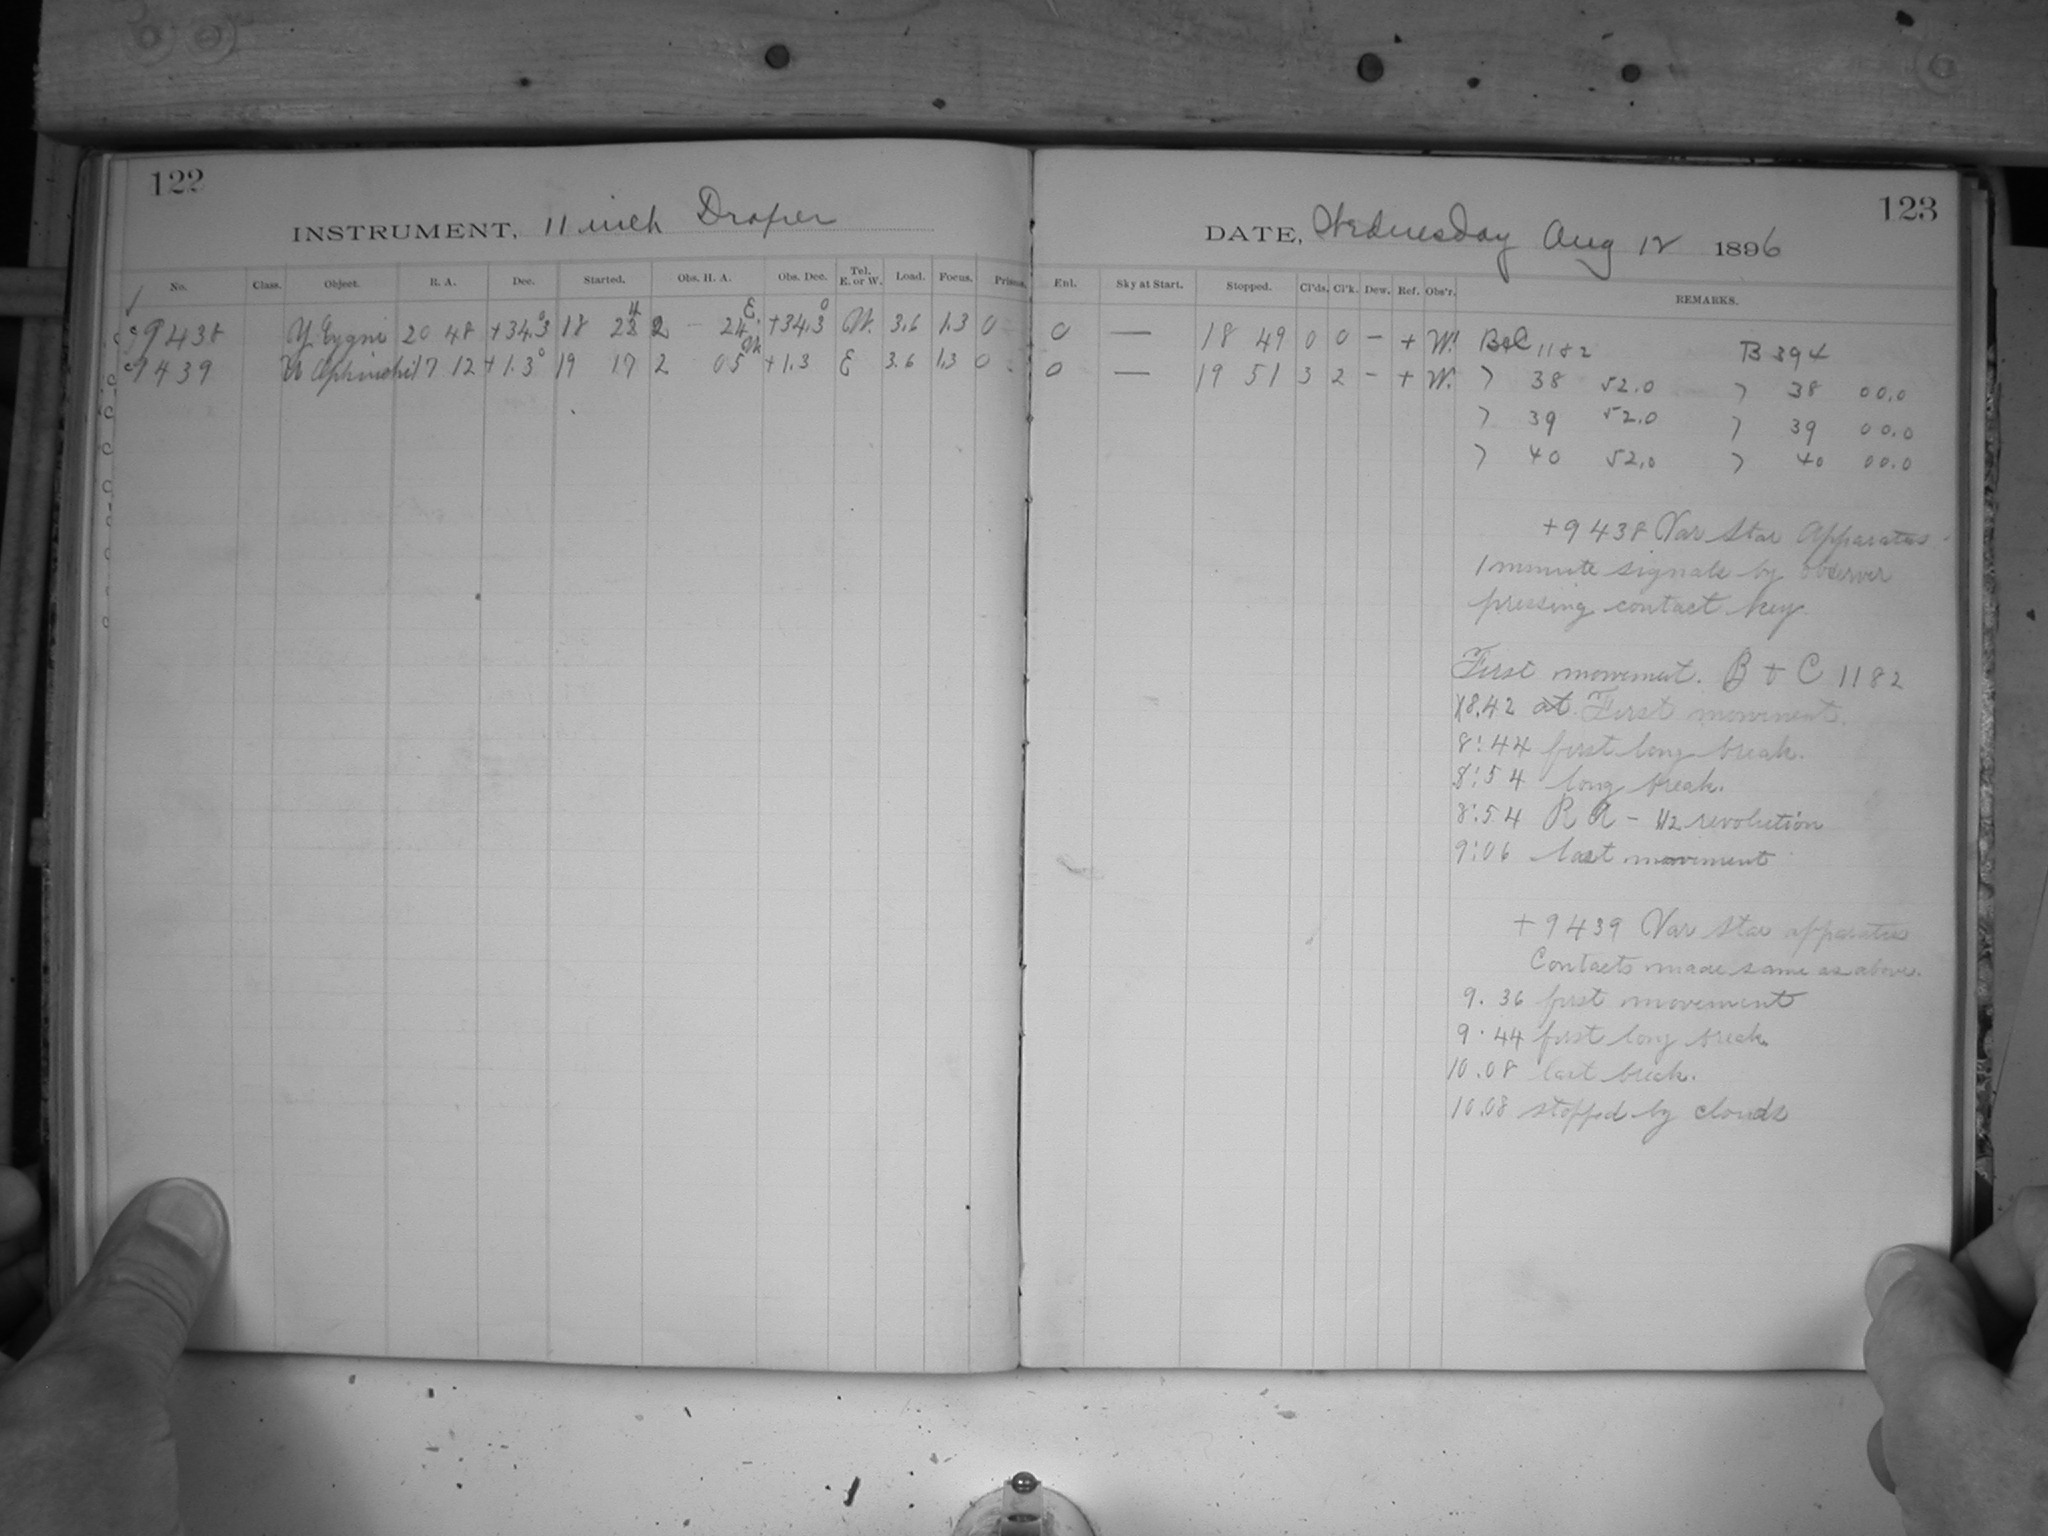 122
INSTRUMENT, 11 inch Draper
No. Class. Object. R. A. Dec. Started. Obs. H. A. Obs. Dec. Tel. E. or W. Load. Focus. Prisms.
c 9438 Y Cygni 20 48 +34.3° 18 2 24 E. +34.3° W. 3.6 1.3 0
c 9439 U Ophiuchi 17 12 +1.3° 19 17 2 05 W +1.3 E 3.6 1.3 0
123
DATE, Wednesday Aug 12 1896
Enl. Sky at Start. Stopped. Cl'ds. Cl'k. Dew. Ref. Obs'r. REMARKS.
0 — 18 49 0 0 - + W. B&C 1182 B 394
0 — 19 51 3 2 - + W. 7 38 52.0 7 38 00.0
7 39 52.0 7 39 00.0
7 40 52.0 7 40 00.0
+9438 Var Star Apparatus
1 minute signals by observer
pressing contact key
First movement. B + C 1182
8.42 at First movement.
8:44 first long break.
8:54 long break.
8:54 R R - 1/2 revolution
9:06 last movement
+ 9439 Var Star apparatus
Contacts made same as above.
9. 36 first movement
9. 44 first long break.
10.08 last break.
10.08 stopped by clouds